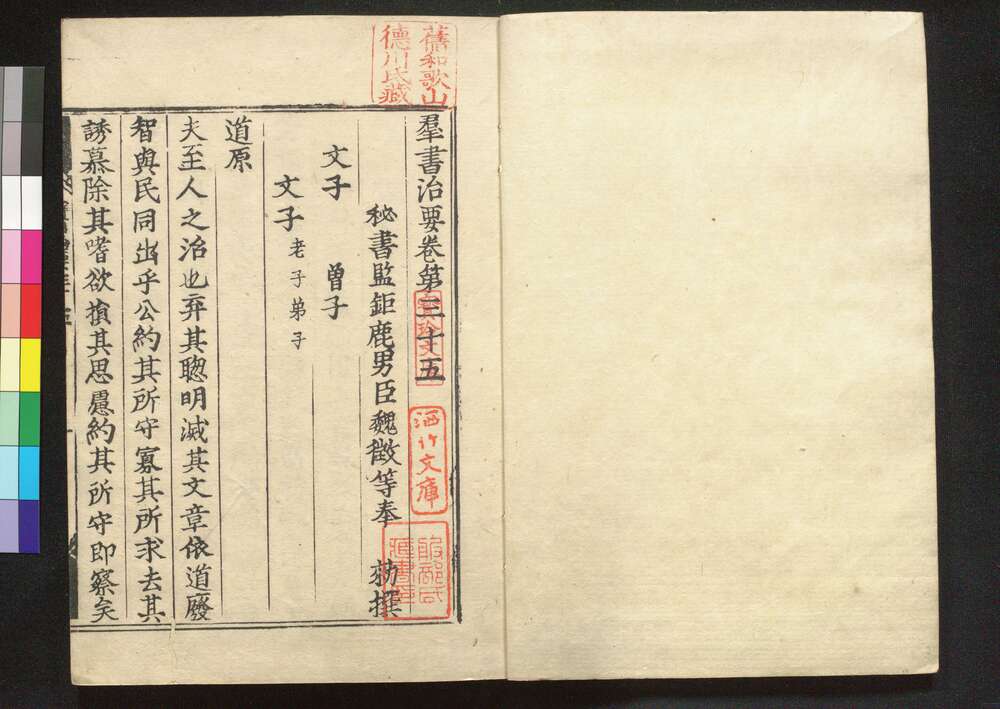 羣書治要卷第三十五
秘書監鉅鹿男臣魏徵等奉 勑撰
文子 曽子
文子 老子弟子
道原
夫至人之治也弃其聦明滅其文章依道廢
智與民同出乎公約其所守寡其所求去其
誘慕除其嗜欲損其思慮約其所守即察矣
舊和歌山
德川氏藏
洒竹文庫
服部氏